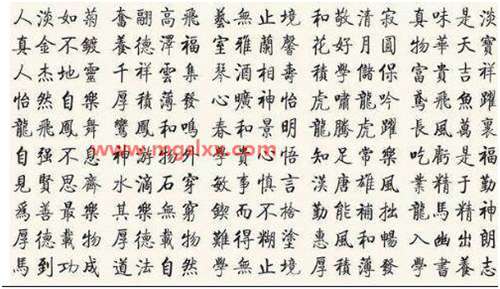 人淡如菊 奮翮高飛 藝無止境 和敬清寂 真味是淡
真金不鍍 養德澤福 室雅蘭馨 花好月圓 物華天寶
人杰地靈 千祥雲集 琴 相壽 學儲 富貴吉祥
怡然自樂 厚積薄發 曠神怡 虎嘯龍吟 鳶飛魚躍
龍飛鳳舞 鸞鳳和鳴 春和景明 龍騰虎躍 長風萬裏
自强不息 神游物外 學貴心悟 知足常樂 吃虧是福
www.mgslxx.com
見賢思齊 水滴石穿 敏事慎言 漢唐雄風 業精于勤
爲善最樂 其樂無窮 鍥而不 勤能補拙 龍馬精神
厚德載物 厚德載物 難得糊塗 惠風和暢 入幽出朗
馬到功成 道法自然 學無止境 厚積薄發 學書養志